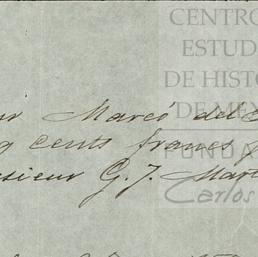 CENTRO
ESTUD
DE HISTO
DE MÉX
FUNDA
Carlos
Marcó del
cents francs
sieur G. J. Mar